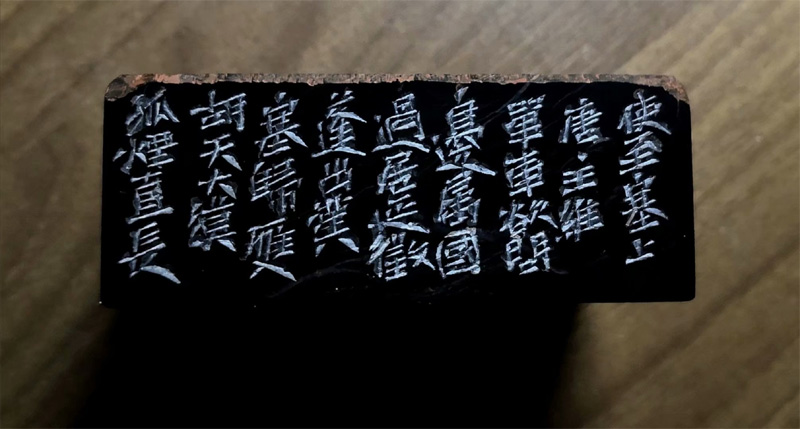 使至塞上
唐·王維
單車欲問
邊属國
過居延徵
蓬出漢
塞歸雁入
胡天大漠
孤煙直長